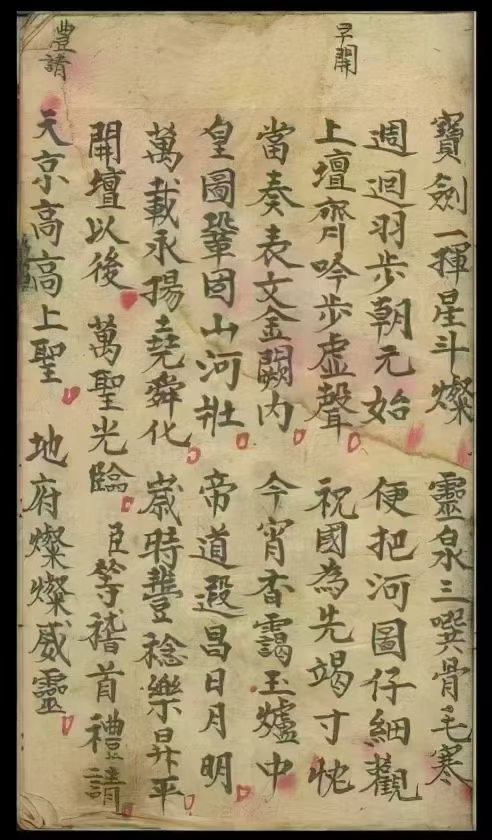 早開
寶劍一揮星斗燦 靈泉三噀骨毛寒
週迴羽步朝元始 便把河圖仔細觀
上壇齊吟步虛聲 祝國為先竭寸忱
當奏表文金闕內 今宵香靄玉爐中
皇圖鞏固山河壯 帝道遐昌日月明
萬載永揚堯舜化 歲時豐稔樂昇平
開壇以後 萬聖光臨 臣等稽首禮請
豐請
天京高高上聖 地府燦燦威靈